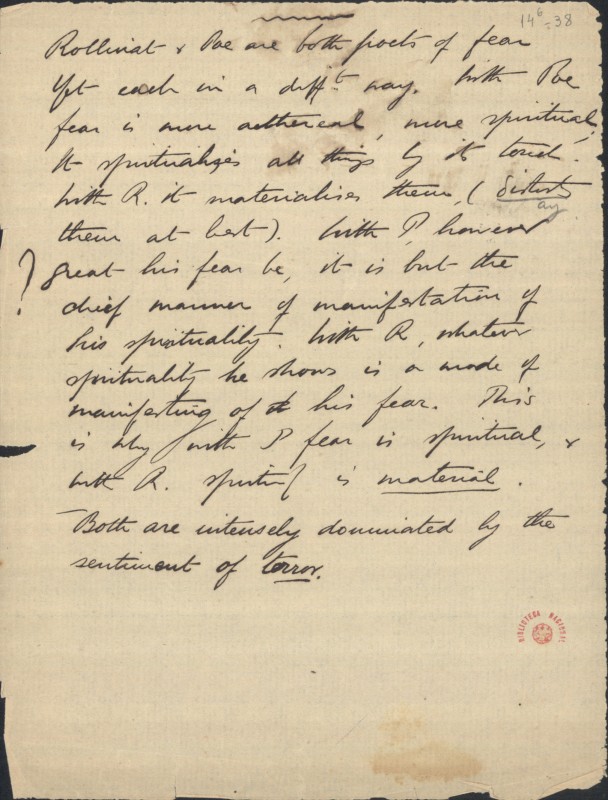 14⁶-38
Rollinat & Poe are both poets of fear
Yet each in a diff.t way. With Poe
fear is more aethereal, more spiritual,
It spiritualizes all things by its touch.
With R. it materialises them, (distorts
them at best). With P, however
? great his fear be, it is but the
chief manner of manifestation of
his spirituality. With R, whatever
spirituality he shows is a mode of
manifesting of his fear. This
is why with P fear is spiritual, &
with R. is material.
Both are intensely dominated by the
sentiment of terror.
BIBLIOTECA NACIONAL